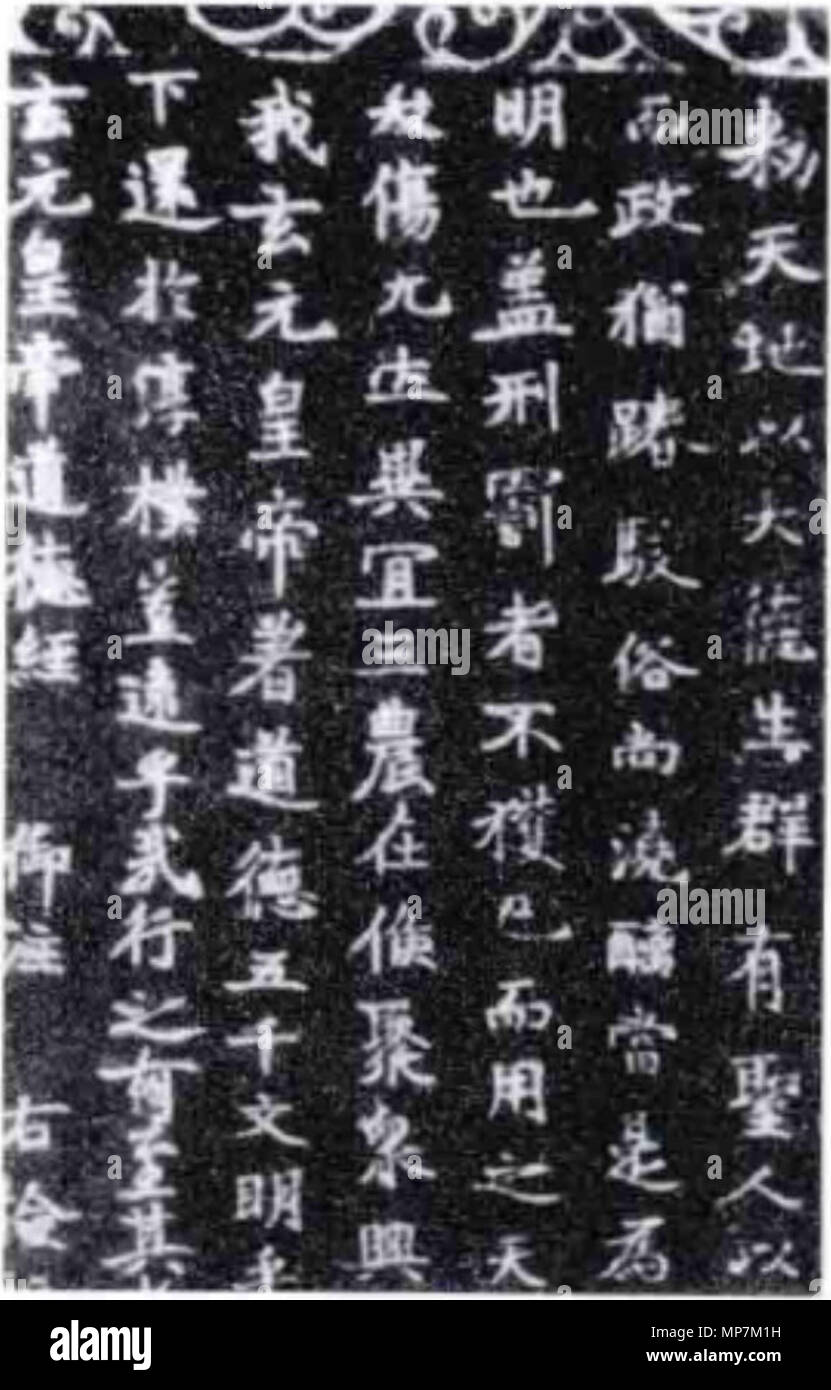 勑天地以大德生群有聖人以
而政猶踳駁俗尚澆醨當是為
明也蓋刑罰者不獲已而用之天
傷尤乖異宜三農在候聚衆興
我玄元皇帝著道德五千文明
下還於淳樸豈遠乎哉行之有至其
玄元皇帝道德經 御注 右令
alamy
Image ID: MP7M1H
www.alamy.com